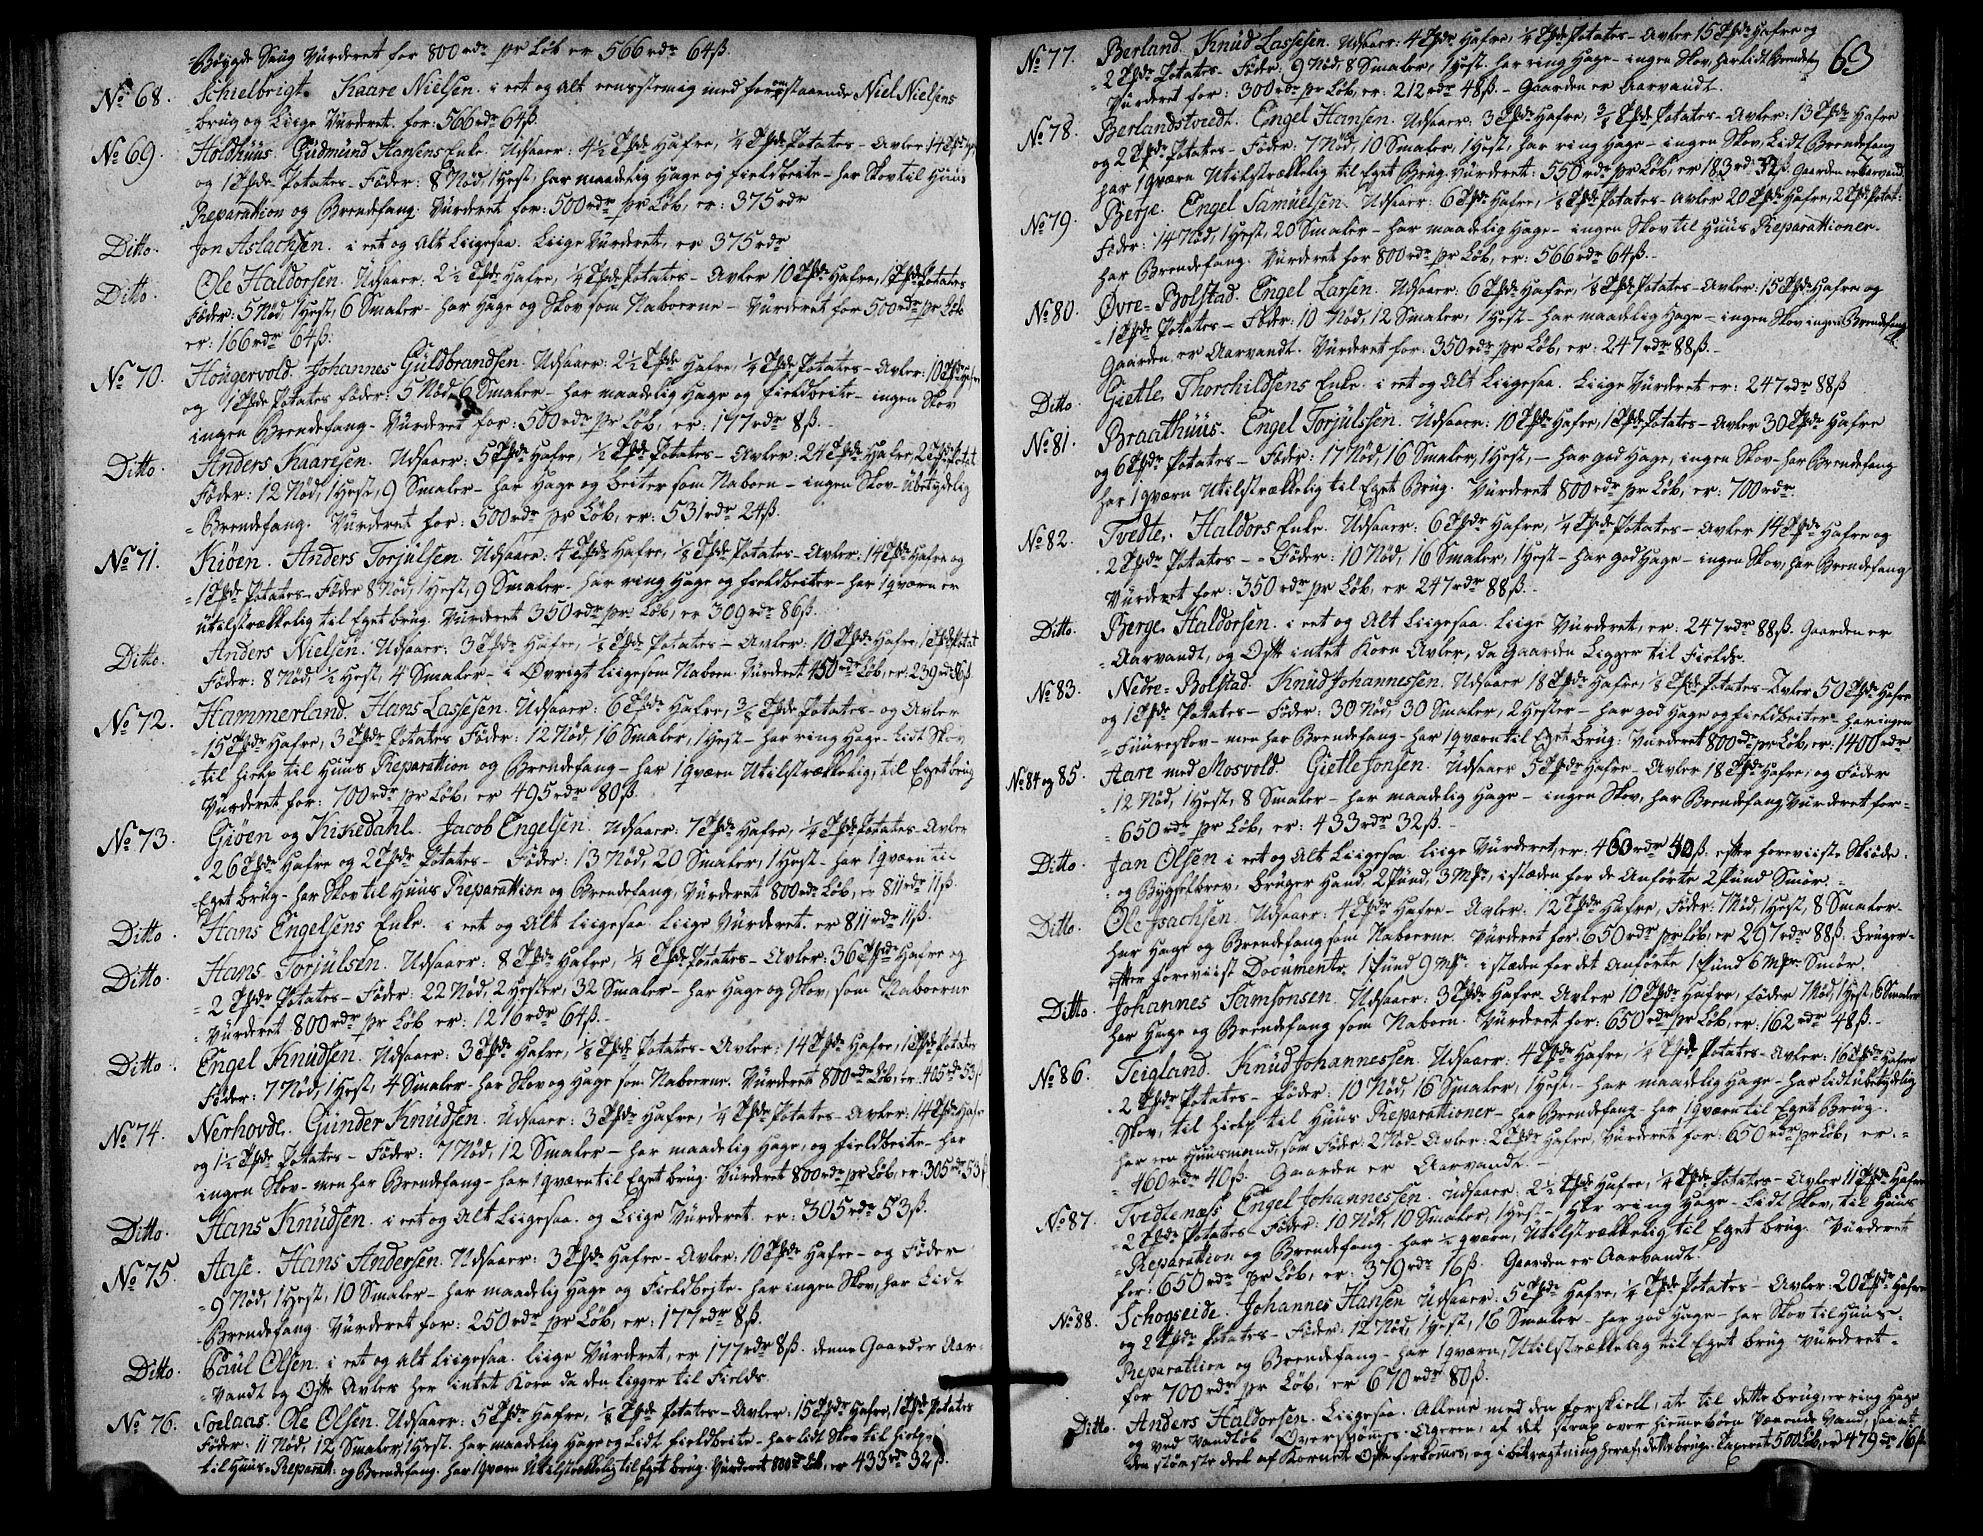 Bøygde Saug Vurderet for 800 rdr pr Løb er 566 rdr 64 ß.
No 68. Schielbrigt. Kaare Nielsen. i eet og Alt eenstemig med forenstaaende Niel Nielsens
brug og Liige Vurderet. for: 566 rdr 64 ß.
No 69. Holdhuus. Gudmund Hansens Enke. Udsaaer: 4½ Tdr Hafre, ¼ Tde Potates - Avler 14 Tdr Hafre
og 1 Tde Potates - Føder: 8 Nød, 1 Hest, har maadelig Hage og fieldbeite - har Skov til Huus
Reparation og Brendefang. Vurderet for: 500 rdr pr Løb, er: 375 rdr
Ditto. Jon Aslachsen. i eet og Alt Liigesaa. Liige Vurderet, er 375 rdr
Ditto. Ole Haldorsen. Udsaaer: 2½ Tdr Hafre, ¼ Tde Potates - Avler 10 Tdr Hafre, 1 Tde Potates
Føder: 5 Nød, 1 Hest, 6 Smaler - har Hage og Skov som Naboerne - Vurderet for 500 rdr pr Løb
er: 166 rdr 64 ß.
No 70. Hougervold. Johannes Guldbrandsen. Udsaaer: 2½ Tdr Hafre, ¼ Tde Potates - Avler: 10 Tdr Hafre
og 1 Tde Potates føder: 5 Nød 6 Smaler - har maadelig Hage og fieldbeite - ingen Skov
ingen Brendefang - Vurderet for: 500 rdr pr Løb, er: 177 rdr 8 ß.
Ditto. Anders Kaaresen. Udsaaer: 5 Tdr Hafre, ½ Tde Potates - Avler: 24 Tdr Hafre, 2 Tdr Potat.
Føder: 12 Nød, 1 Hest, 9 Smaler - har Hage og beiter som Naboen - ingen Skov - ubetydelig
Brendefang. Vurderet for: 500 rdr pr Løb, er: 531 rdr 24 ß.
No 71. Kiøen. Anders Torjulsen. Udsaaer: 4 Tdr Hafre, ⅛ Tde Potates - Avler: 14 Tdr Hafre og
1 Tde Potates - Føder 8 Nød, 1 Hest, 9 Smaler - har ring Hage og fieldbeiter - har 1 qværn er
utilstrækkelig til Eget brug. Vurderet 350 rdr pr Løb, er 309 rdr 86 ß.
Ditto. Anders Nielsen. Udsaaer: 3 Tdr Hafre, ⅛ Tde Potates - Avler: 10 Tdr Hafre, 1 Tde Potat
Føder: 8 Nød, ½ Hest, 4 Smaler - i Øvrigt liigesom Naboen. Vurderet 450 rdr Løb, er: 239 rdr 56 ß.
No 72. Hammerland. Hans Lassesen. Udsaaer: 6 Tdr Hafre, ⅜ Tde Potates - og Avler
15 Tdr Hafre, 3 Tdr Potates Føder: 12 Nød, 16 Smaler, 1 Hest - har ring Hage - Lidt Skov
til hielp til Huus Reparation og Brendefang - har 1 qværn Utilstrækkelig, til Eget brug
Vurderet for: 700 rdr pr Løb, er 495 rdr 80 ß.
No 73. Giøen og Kikedahl. Jacob Engelsen. Udsaaer: 7 Tdr Hafre, ¼ Tde Potates - Avler
26 Tdr Hafre og 2 Tdr Potates - Føder: 13 Nød, 20 Smaler, 1 Hest - har 1 qværn til
Eget brug - har Skov til Huus Reparation og Brendefang, Vurderet 800 rdr Løb, er 811 rdr 11 ß.
Ditto. Hans Engelsens Enke. i eet og Alt Liigesaa. Liige Vurderet. er 811 rdr 11 ß.
Ditto. Hans Torjulsen. Udsaaer: 8 Tdr Hafre, ¼ Tde Potates - Avler: 36 Tdr Hafre og
2 Tdr Potates - Føder: 22 Nød, 2 Hester, 32 Smaler - har Hage og Skov, som Naboerne
Vurderet 800 rdr pr Løb er: 1216 rdr 64 ß.
Ditto. Engel Knudsen. Udsaaer: 3 Tdr Hafre, ⅛ Tde Potates - Avler: 14 Tdr Hafre, 1 Tde Potates
Føder: 7 Nød, 1 Hest, 4 Smaler - har Skov og Hage som Naboerne. Vurderet 800 rdr Løb, er: 405 rdr 53 ß
No 74. Nerhovde. Gunder Knudsen. Udsaaer: 3 Tdr Hafre, ¼ Tde Potates - Avler: 14 Tdr Hafre
og 1½ Tde Potates - Føder: 7 Nød, 12 Smaler - har maadelig Hage, og fieldbeite - har
ingen Skov - men har Brendefang - har 1 qværn til Eget brug. Vurderet 800 rdr pr Løb, er: 305 rdr 53 ß
Ditto. Hans Knudsen. i eet og Alt Liigesaa. og Liige Vurderet. er: 305 rdr 53 ß.
No 75. Aase. Hans Andersen. Udsaaer: 3 Tdr Hafre - Avler: 10 Tdr Hafre - og Føder
9 Nød, 1 Hest, 10 Smaler - har maadelig Hage og Fieldbeite - har ingen Skov, har Lidt
Brendefang. Vurderet for: 250 rdr pr Løb, er: 177 rdr 8 ß.
Ditto. Paul Olsen. i eet og Alt Liigesaa. Liige Vurderet, er 177 rdr 8 ß. denne Gaard er Aar-
vandt og Ofte Avles her intet Korn da den Ligger til Fields.
No 76. Sælaas. Ole Olsen. Udsaaer: 5 Tdr Hafre, ⅛ Tde Potates - Avler: 15 Tdr Hafre, 1 Tde Potates
Føder: 11 Nød, 12 Smaler, 1 Hest. har maadelig Hage og Lidt fieldbeite - har lidt Skov til hielp
til Huus Reparatt: og Brendefang. har 1 qværn Utilstrækkelig til Eget brug. Vurderet 800 rdr Løb, er 433 rdr 32 ß.
63
No 77. Berland. Knud Lassesen. Udsaaer: 4 Tdr Hafre, ¼ Tde Potates - Avler 15 Tdr Hafre og
2 Tdr Potates - Føder: 9 Nød, 8 Smaler, 1 Hest. har ring Hage - ingen Skov, har Lidt Brendefang
Vurderet for: 300 rdr pr Løb, er: 212 rdr 48 ß. - Gaarden er Aarvandt.
No 78. Berlandstvedt. Engel Hansen. Udsaaer: 3 Tdr Hafre, ⅜ Tde Potates - Avler: 13 Tdr Hafre
og 2 Tdr Potates - Føder: 7 Nød, 10 Smaler, 1 Hest, har ring Hage - ingen Skov, Lidt Brendefang
har 1 qværn Utilstrækkelig til Eget Brug. Vurderet: 550 rdr pr Løb, er 183 rdr 32 ß. Gaarden er Aarvand
No 79. Berje. Engel Samuelsen. Udsaaer: 6 Tdr Hafre, ⅛ Tde Potates - Avler 20 Tdr Hafre, 2 Tdr Potat:
Føder: 14 Nød, 1 Hest, 20 Smaler - har maadelig Hage - ingen Skov til Huus Reparationer.
har Brendefang. Vurderet for 800 rdr pr Løb, er: 566 rdr 64 ß. -
No 80. Øvre-Bolstad. Engel Larsen. Udsaaer: 6 Tdr Hafre, ⅛ Tde Potates - Avler: 15 Tdr Hafre og
1 Tde Potates - Føder: 10 Nød, 12 Smaler, 1 Hest - har maadelig Hage - ingen Skov ingen Brendefang
Gaarden er Aarvandt. Vurderet for: 350 rdr pr Løb, er: 247 rdr 88 ß. -
Ditto. Gietle Thorchildsens Enke. i eet og Alt Liigesaa. Liige Vurderet er: 247 rdr 88 ß
No 81. Braathuus. Engel Torjulssen. Udsaaer: 10 Tdr Hafre, 1 Tde Potates - Avler 30 Tdr Hafre
og 6 Tdr Potates - Føder: 17 Nød, 16 Smaler, 1 Hest, - har god Hage, ingen Skov - har Brendefang
har 1 qværn Utilstrækkelig til Eget Brug. Vurderet 800 rdr pr Løb, er: 700 rdr.
No 82. Tvedte. Haldors Enke. Udsaaer: 6 Tdr Hafre, ¼ Tde Potates - Avler 14 Tdr Hafre og
2 Tdr Potates - - Føder: 10 Nød, 16 Smaler, 1 Hest - har god Hage - ingen Skov, har Brendefang
Vurderet for: 350 rdr pr Løb, er 247 rdr 88 ß. -
Ditto. Berge Haldorsen. i eet og Alt Liigesaa. Liige Vurderet, er: 247 rdr 88 ß. Gaarden er
Aarvandt, og Ofte intet Korn Avler, da Gaarden Ligger til Fields.
No 83. Nedre-Bolstad. Knud Johannessen. Udsaaer 18 Tdr Hafre, ⅛ Tde Potates - Avler 50 Tdr Hafre
og 1 Tde Potates - Føder: 30 Nød, 30 Smaler, 2 Hester - har god Hage og fieldbeiter - har ingen
Fuureskov - men har Brendefang - har 1 qværn til Eget brug: Vurderet 800 rdr pr Løb, er: 1400 rdr
No 84 og 85. Aare med Mosvold. Gietle Jonsen. Udsaaer 5 Tdr Hafre - Avler 18 Tdr Hafre, og Føder
12 Nød, 1 Hest, 8 Smaler - har maadelig Hage - ingen Skov, har Brendefang Vurderet for-
650 rdr pr Løb, er: 433 rdr 32 ß. -
Ditto Jan Olsen i eet og Alt Liigesaa liige Vurderet, er: rdr ß. efter foreviiste Skiøde.
og Bygselbrev. Bruger Hand 2 Pund, 3 Mrk, istæden for de Anførte 2 Pund Smør. -
Ditto. Ole Isachsen. Udsaaer: 4 Tdr Hafre - Avler: 12 Tdr Hafre, Føder: 7 Nød, 1 Hest, 8 Smaler -
har Hage og Brendefang som Naboerne. Vurderet for 650 rdr pr Løb, er 297 rdr 88 ß. Bruger-
efter foreviist Documenter 1 Pund 9 Mrk. istæden for det Anførte 1 Pund 6 Mrk Smør.
Ditto. Johannes Samsonsen. Udsaaer: 3 Tdr Hafre - Avler 10 Tdr Hafre, føder 7 Nød, 1 Hest, 6 Smaler
har Hage og Brendefang som Naboen. Vurderet for: 650 rdr pr Løb, er: 162 rdr 48 ß. -
No 86. Teigland. Knud Johannessen. Udsaaer: 4 Tdr Hafre, ¼ Tde Potates - Avler: 16 Tdr Hafre
2 Tdr Potates - Føder: 10 Nød, 16 Smaler, 1 Hest. - har maadelig Hage - har lidt ubetydelig
Skov, til hielp til Huus Reparationer - har Brendefang - har 1 qværn til Eget Brug.
har een Huusmand, som Føder: 2 Nød. Avler: 2 Tdr Hafre, Vurderet for: 650 rdr pr Løb, er. -
460 rdr 40 ß. Gaarden er Aarvandt. -
No 87. Tvedtenæss Engel Johannessen. Udsaaer: 2½ Tdr Hafre, ¼ Tde Potates - Avler 11 Tdr Hafre
2 Tdr Potates - Føder: 10 Nød, 10 Smaler, 1 Hest - Har ring Hage - Lidt Skov, til Huus
Reparation og Brendefang - har ½ qværn, Utilstrækkelig til Eget brug. Vurderet
for: 650 rdr pr Løb, er: 379 rdr 16 ß. Gaarden er Aarvandt.
No 88. Schogseide. Johannes Hansen Udsaaer: 5 Tdr Hafre, ¼ Tde Potates - Avler: 20 Tdr Hafre
og 2 Tdr Potates - Føder: 12 Nød, 1 Hest, 16 Smaler - har god Hage - har Skov til Huus-
Reparation og Brendefang - har 1 qværn, Utilstrækkelig til Eget brug Vurderet-
for 700 rdr pr Løb, er 670 rdr 80 ß.
Ditto. Anders Haldorsen. Liigesaa. Allene med den forskiell, at til dette brug, er ring Hage
og ved Vandløb Oversvømes Ageren, af det strax over hiemebøen Værende Vand, saa at
den største deel af Kornet Ofte forkomes, og i betragtning heraf, er dette brug Taxeret 500 Løb, er 479 rdr 16 ß.